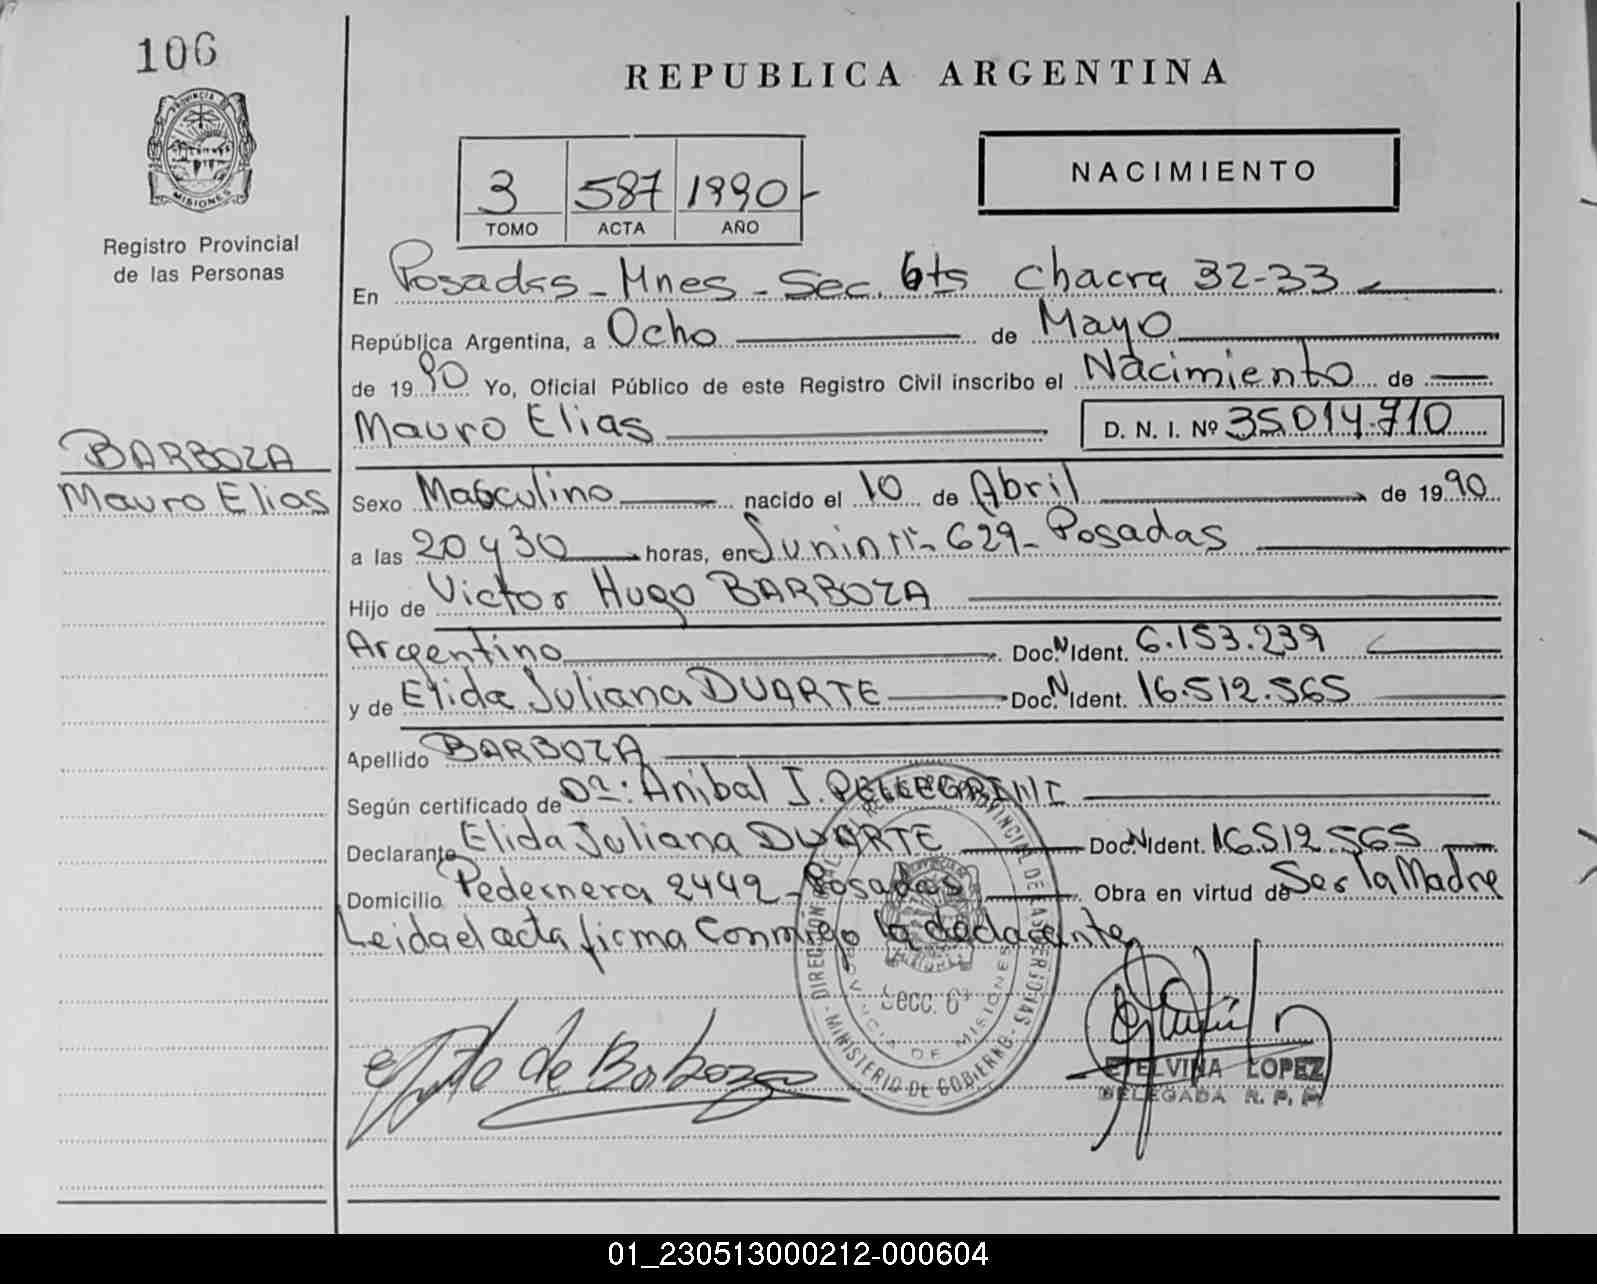 106
REPUBLICA ARGENTINA
PROVINCIA DE
MISIONES
Registro Provincial
de las Personas
3 587 1990
TOMO ACTA AÑO
NACIMIENTO
En Posadas - Mnes - Sec. 6ts Chacra 32-33
República Argentina, a Ocho de Mayo
de 1990 Yo, Oficial Público de este Registro Civil inscribo el Nacimiento de
Mauro Elias D. N. I. Nº 35.014.710
BARBOZA
Mauro Elias
Sexo Masculino nacido el 10 de Abril de 1990
a las 20 y 30 horas, en Junin Nº 629 - Posadas
Hijo de Victor Hugo BARBOZA
Argentino Doc. N Ident. 6.153.239
y de Elida Juliana DUARTE Doc. N Ident. 16.512.565
Apellido BARBOZA
Según certificado de Dr: Anibal J. PELLEGRINI
Declarante Elida Juliana DUARTE Doc. N Ident. 16.512.565
Domicilio Pedernera 2442 - Posadas Obra en virtud de Ser la Madre
Leida el acta firma Conmigo la declarante
DIRECCIÓN PROVINCIAL DE LAS PERSONAS
MINISTERIO DE GOBIERNO
PROVINCIA DE MISIONES
Secc. 6ª
de Barboza
ETELVINA LOPEZ
DELEGADA R. P. P.
01_230513000212-000604